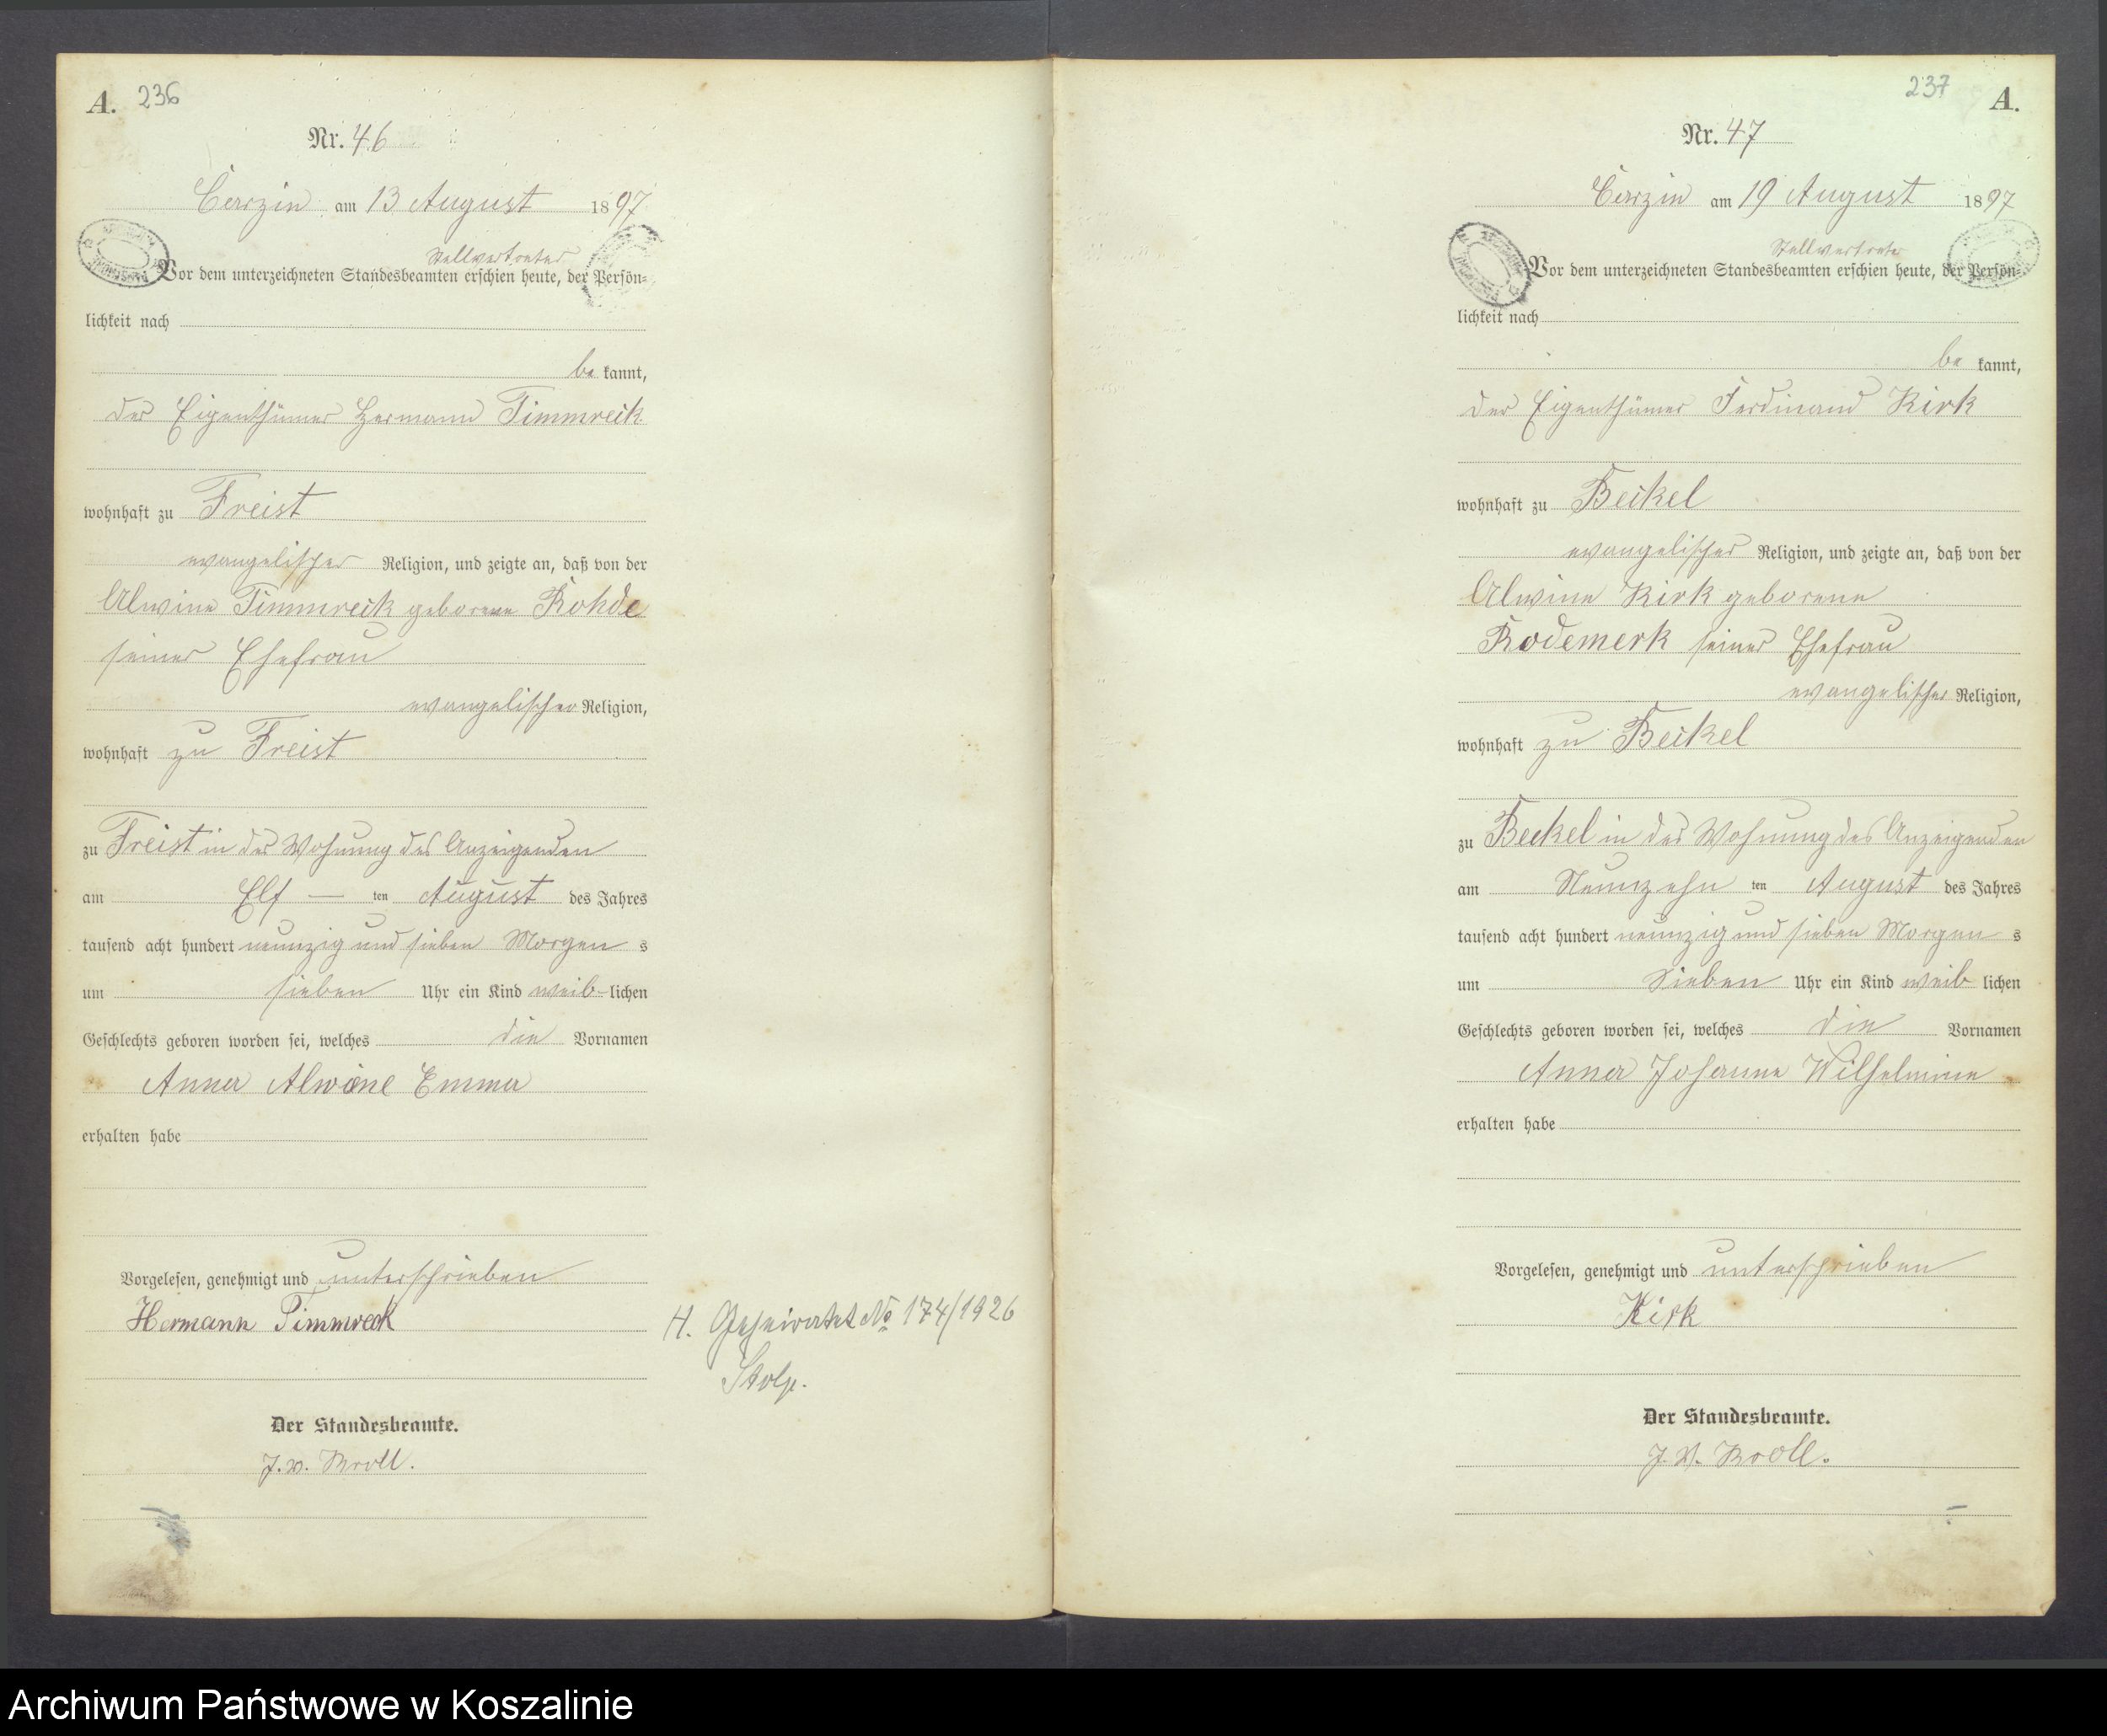 A. 236
Nr. 46
Carzin am 13 August 1897
Stellvertreter
Vor dem unterzeichneten Standesbeamten erschien heute, der Persön-
lichkeit nach
be kannt,
der Eigenthümer Hermann Timmreck
wohnhaft zu Freist
evangelischer Religion, und zeigte an, daß von der
Alwine Timmreck geborene Rohde
seiner Ehefrau
evangelischer Religion,
wohnhaft zu Freist
zu Freist in der Wohnung des Anzeigenden
am Elf — ten August des Jahres
tausend acht hundert neunzig und sieben Morgen s
um sieben Uhr ein Kind weib-lichen
Geschlechts geboren worden sei, welches die Vornamen
Anna Alwine Emma
erhalten habe
Vorgelesen, genehmigt und unterschrieben
Hermann Timmreck
Der Standesbeamte.
J. V. Kroll.
H. Geheiratet No 174/1926
Stolp.
237 A.
Nr. 47
Carzin am 19 August 1897
Stellvertreter
Vor dem unterzeichneten Standesbeamten erschien heute, der Persön-
lichkeit nach
be kannt,
der Eigenthümer Ferdinand Kirk
wohnhaft zu Beckel
evangelischer Religion, und zeigte an, daß von der
Alwine Kirk geborene
Rodemerk seiner Ehefrau
evangelischer Religion,
wohnhaft zu Beckel
zu Beckel in der Wohnung des Anzeigenden
am Neunzehn ten August des Jahres
tausend acht hundert neunzig und sieben Morgen s
um Sieben Uhr ein Kind weib lichen
Geschlechts geboren worden sei, welches die Vornamen
Anna Johanne Wilhelmine
erhalten habe
Vorgelesen, genehmigt und unterschrieben
Kirk
Der Standesbeamte.
J. V. Kroll.
Archiwum Państwowe w Koszalinie